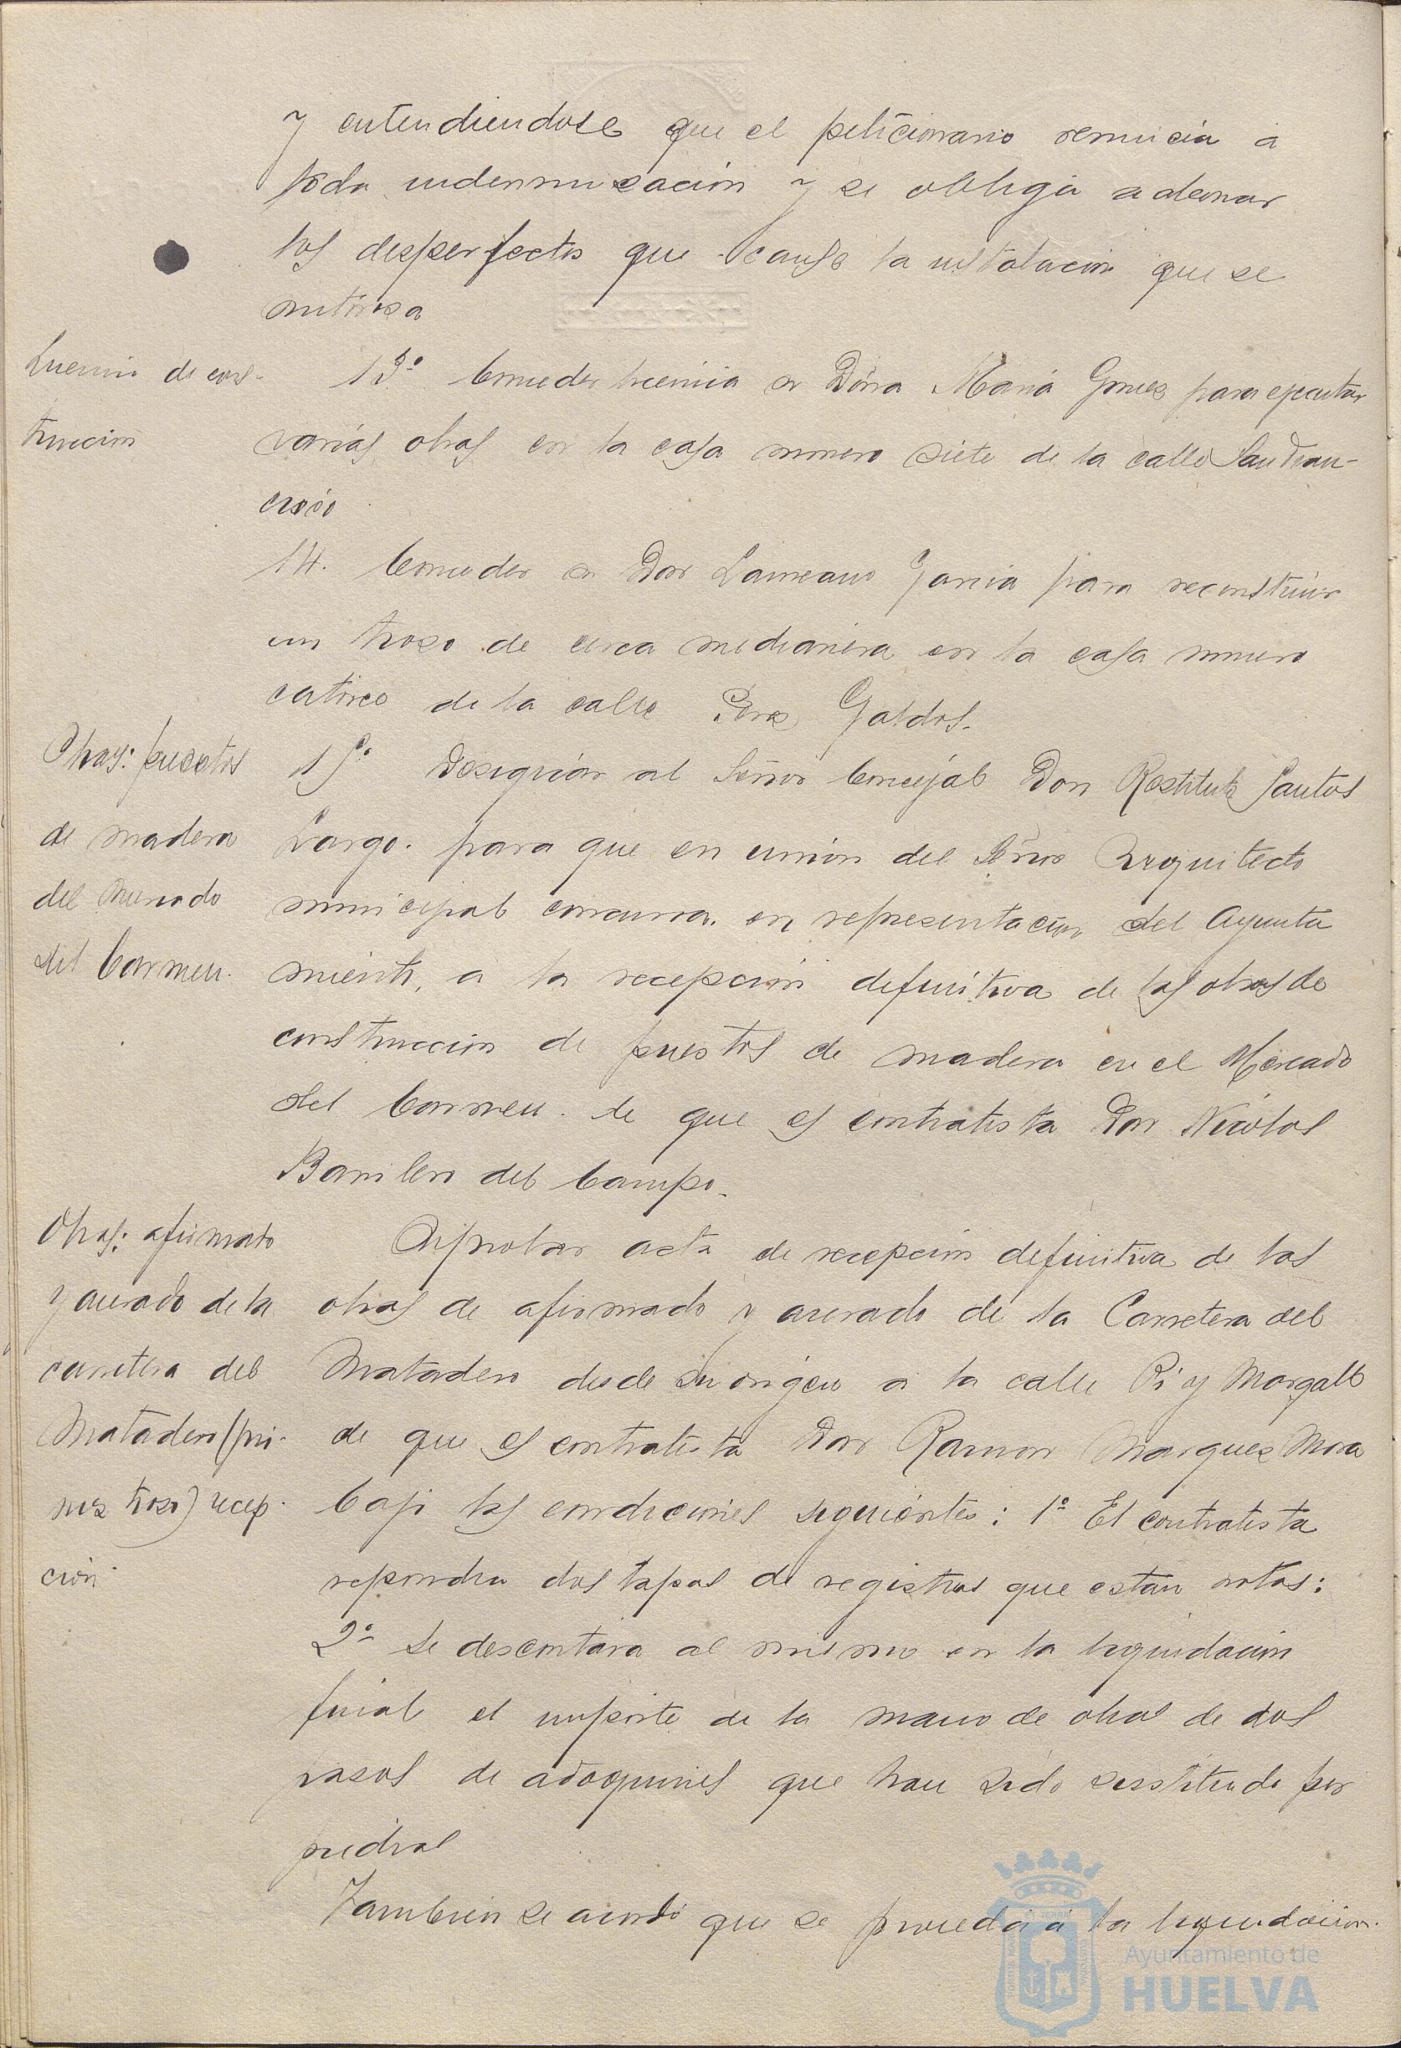 y entendiendose que el peticionario renuncia a
toda indemnización y se obliga a abonar
los desperfectos que cause la instalación que se
autoriza
Licencia de cons-
trucción
13º Conceder licencia a Doña Maria Gomez para ejecutar
varias obras en la casa numero siete de la calle San Fran-
cisco
14. Conceder a Don Laureano Garcia para reconstruir
un trozo de cerca medianera en la casa numero
catorce de la calle Perez Galdos.
Obras: puestos
de madera
del Mercado
del Carmen.
15º Designar al Señor Concejal Don Restituto Santos
Largo. para que en union del Señor Arquitecto
municipal concurra. en representacion del Ayunta
miento, a la recepción definitiva de las obras de
construccion de puestos de madera en el Mercado
del Carmen. de que es contratista Don Nicolas
Barrilero del Campo.
Obras: afirmado
y acerado de la
carretera del
Matadero (pri-
mer trozo) recep-
ción.
Aprobar acta de recepcion definitiva de las
obras de afirmado y acerado de la Carretera del
Matadero desde su origen a la calle Pi y Margall
de que es contratista Don Ramon Marquez Mora
bajo las condiciones siguientes: 1ª El contratista
repondra dos tapas de registros que estan rotas:
2ª Se descontara al mismo en la liquidación
final el importe de la mano de obra de dos
pasos de adoquines que han sido sustituido por
piedras
Tambien se acordó que se proceda a la liquidacion.
Ayuntamiento de
HUELVA